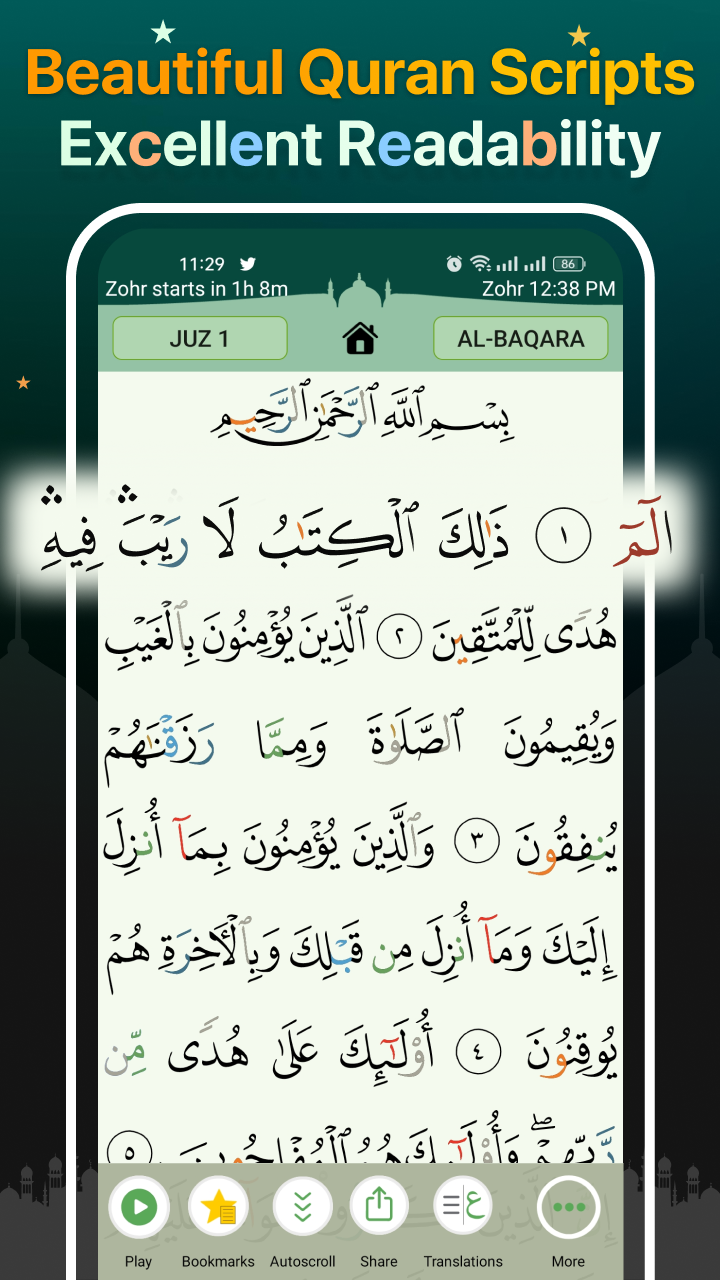 Beautiful Quran Scripts
Excellent Readability
11:29 86
Zohr starts in 1h 8m Zohr 12:38 PM
JUZ 1 AL-BAQARA
بِسْمِ ٱللَّهِ ٱلرَّحْمَٰنِ ٱلرَّحِيمِ
الٓمٓ ١ ذَٰلِكَ ٱلْكِتَٰبُ لَا رَيْبَ ۛ فِيهِ ۛ
هُدًى لِّلْمُتَّقِينَ ٢ ٱلَّذِينَ يُؤْمِنُونَ بِٱلْغَيْبِ
وَيُقِيمُونَ ٱلصَّلَوٰةَ وَمِمَّا رَزَقْنَٰهُمْ
يُنفِقُونَ ٣ وَٱلَّذِينَ يُؤْمِنُونَ بِمَآ أُنزِلَ
إِلَيْكَ وَمَآ أُنزِلَ مِن قَبْلِكَ وَبِٱلْأَخِرَةِ هُمْ
يُوقِنُونَ ٤ أُوْلَٰٓئِكَ عَلَىٰ هُدًى مِّن
رَّبِّهِمْ ۖ وَأُوْلَٰٓئِكَ هُمُ ٱلْمُفْلِحُونَ ٥
Play Bookmarks Autoscroll Share Translations More